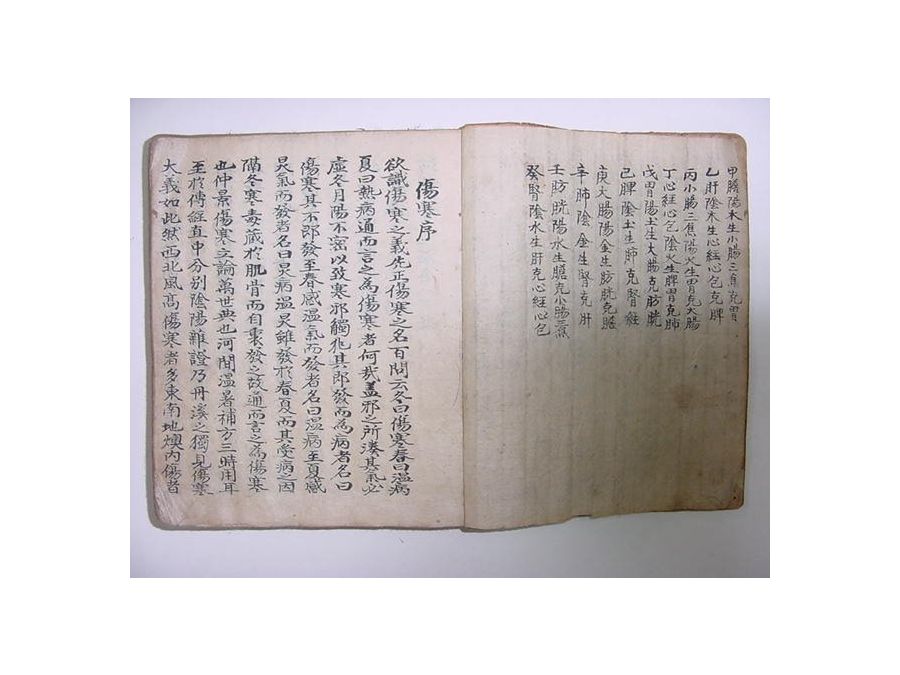 甲膽陽木生小腸三焦克胃
乙肝陰木生心經心包克脾
丙小腸三焦陽火生胃克大腸
丁心經心包陰火生脾胃克肺
戊胃陽土生大腸克肪胱
己脾陰土生肺克腎經
庚大腸陽金生肪胱克膽
辛肺陰金生腎克肝
壬肪胱陽水生膽克小腸三焦
癸腎陰水生肝克心經心包
傷寒序
欲識傷寒之義先正傷寒之名百問云冬曰傷寒春曰溫病
夏曰熱病通而言之為傷寒者何哉盖邪之所湊其氣必
虛冬月陽不密以致寒邪觸犯其即發而為病者名曰
傷寒其不即發至春感溫氣而發者名曰溫病至夏感
炅氣而發者名曰炅病溫炅雖發於春夏而其受病之因
隔冬寒毒藏於肌骨而自裏發之故通而言之為傷寒
也仲景傷寒立論萬世典也河間溫暑補方三時用耳
至於傳經直中分別陰陽雜證乃丹溪之獨見傷寒
大義如此然西北風高傷寒者多東南地燠內傷者